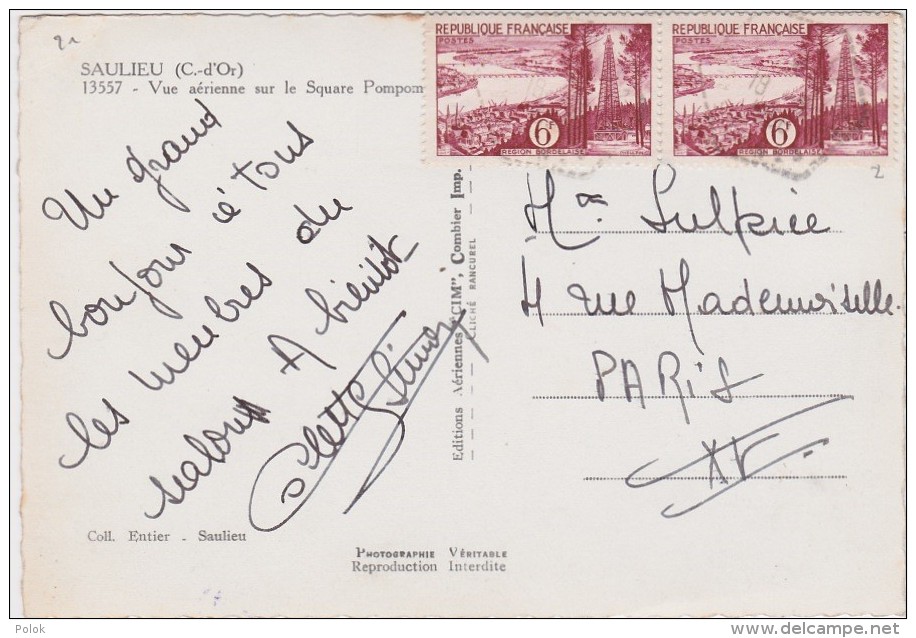 SAULIEU (C.-d'Or)
13557 - Vue aérienne sur le Square Pompom
Un grand
bonjour à tous
les membres du
salon A bientôt
Colette Simon
Coll. Entier - Saulieu
PHOTOGRAPHIE VÉRITABLE
Reproduction Interdite
Editions Aériennes "CIM", Combier Imp.
CLICHÉ RANCUREL
RÉPUBLIQUE FRANÇAISE
POSTES
6F
RÉGION BORDELAISE
RÉPUBLIQUE FRANÇAISE
POSTES
6F
RÉGION BORDELAISE
2
Sulpice
4 rue Mademoiselle
PARIS
XV
Polok
www.delcampe.net